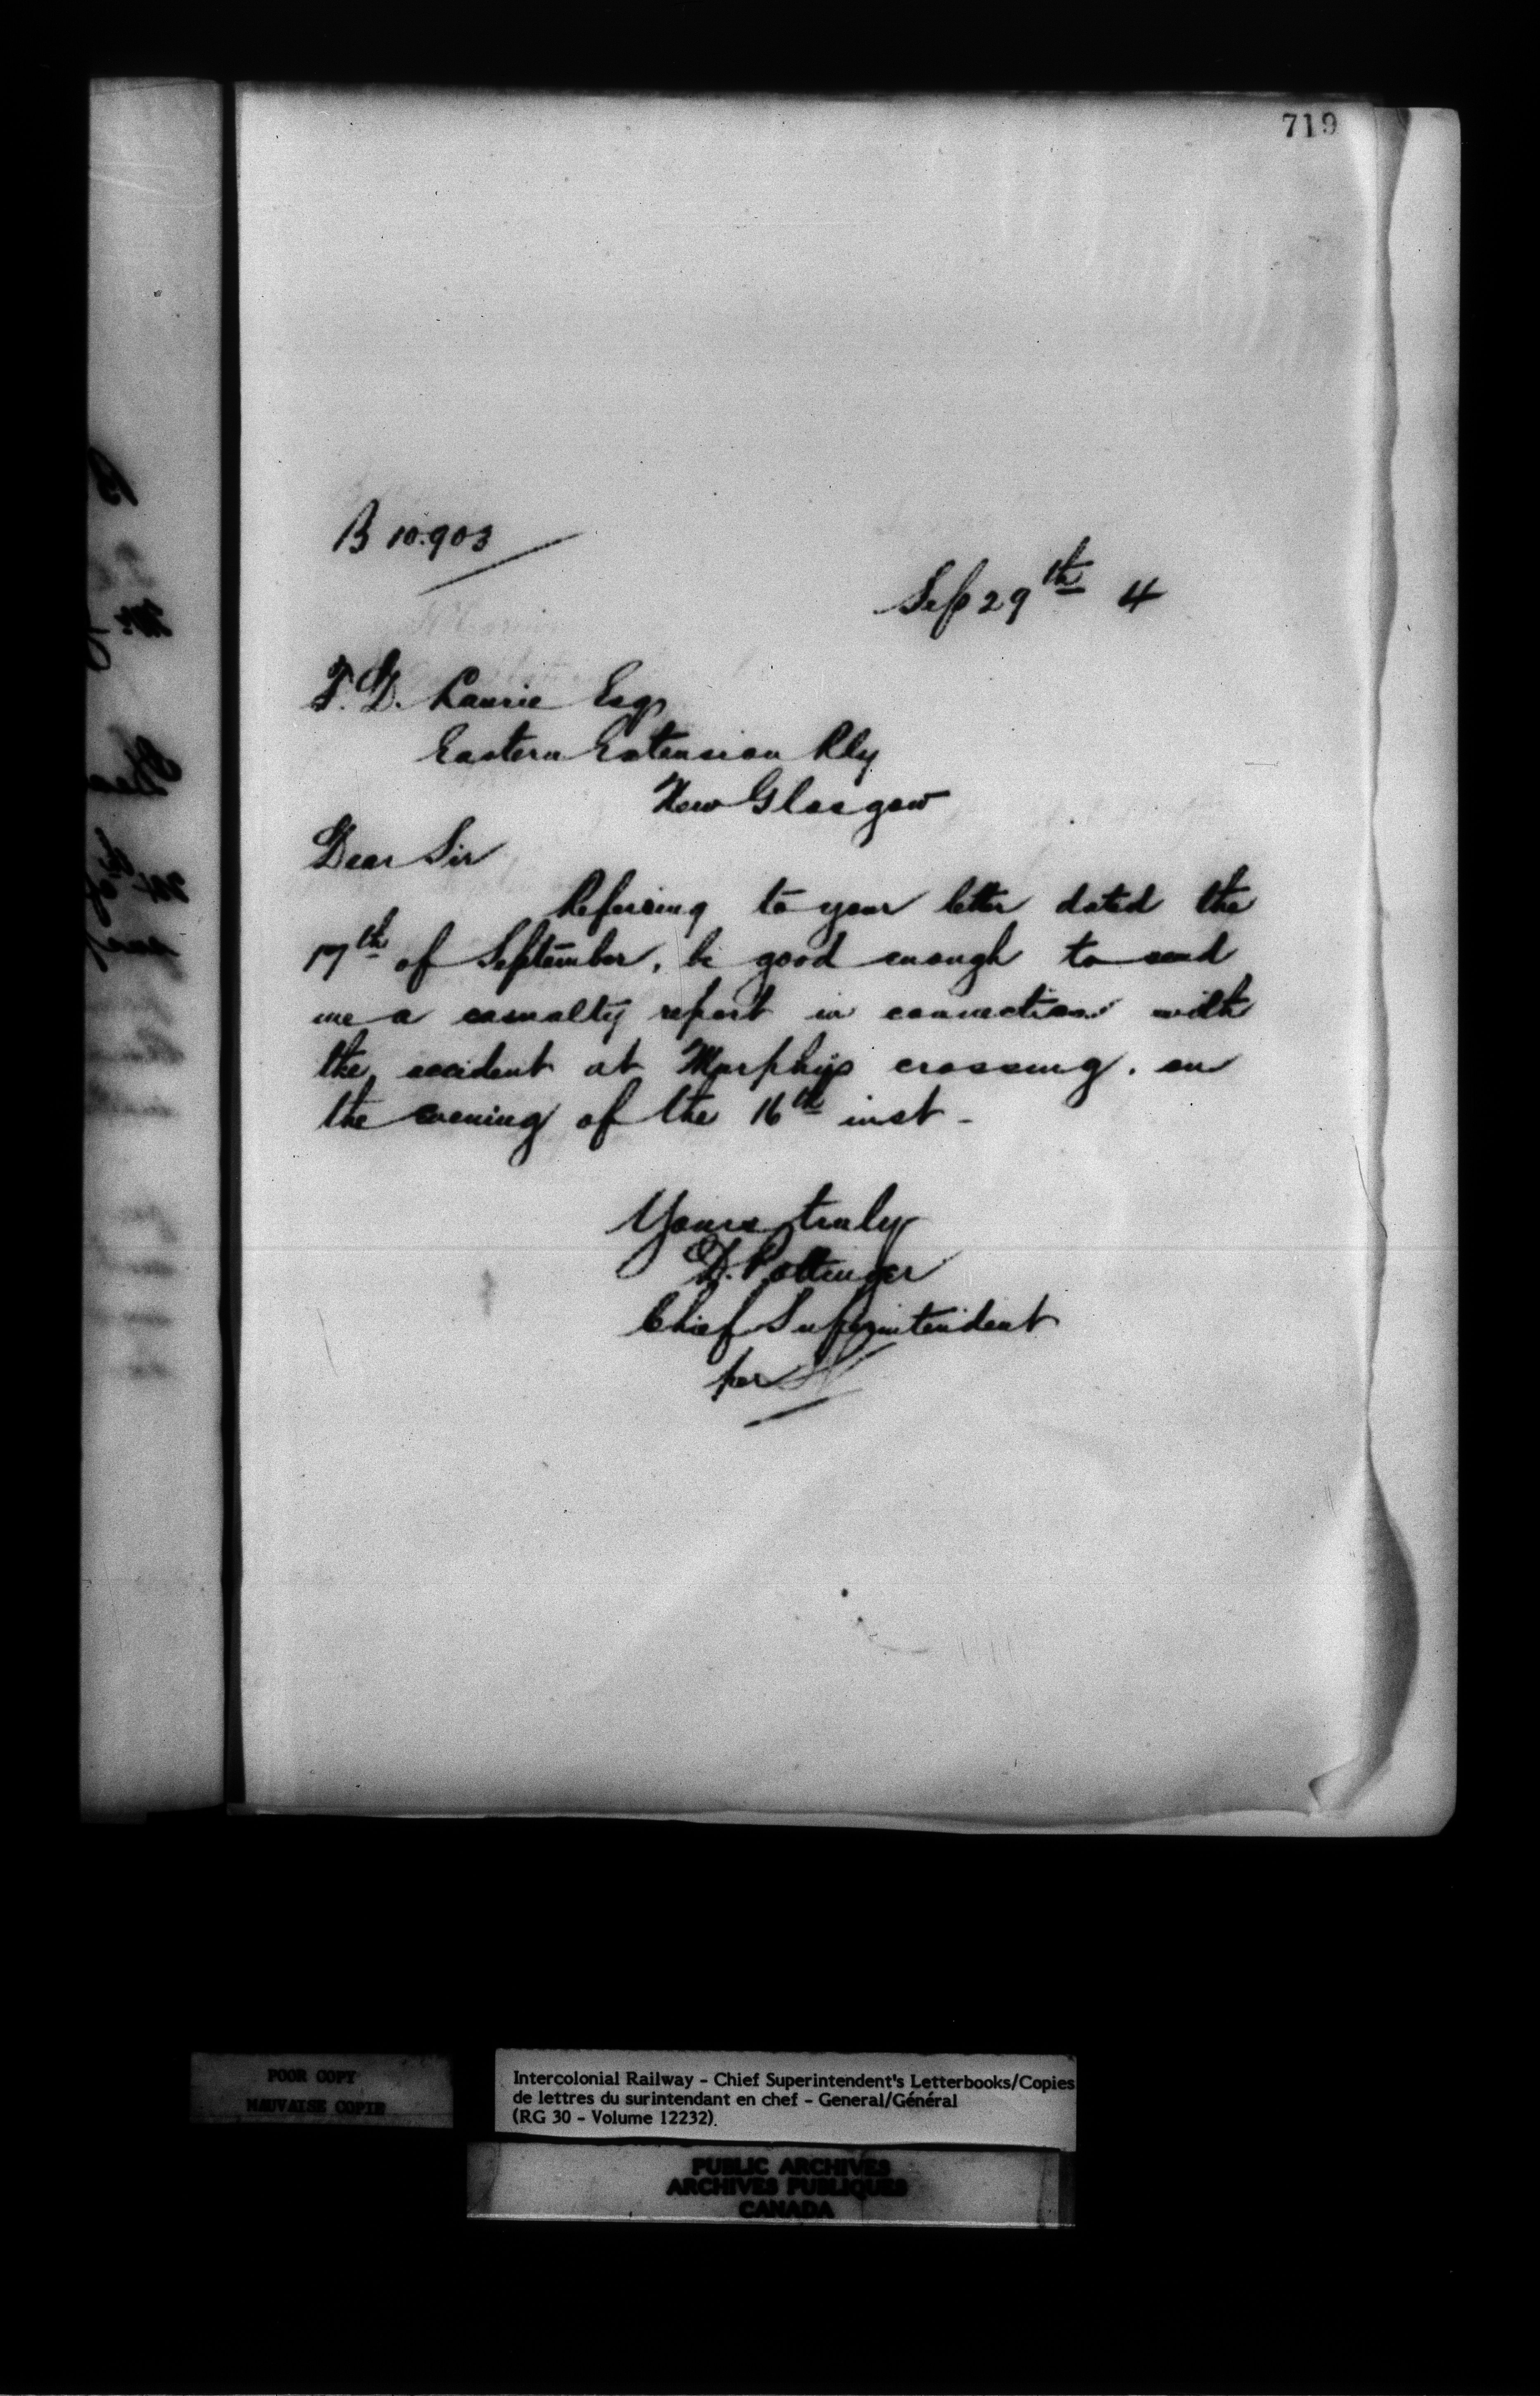 719
B 10.903
Sep 29th 4
T. D. Laurie Esq
Eastern Extension Rly
New Glasgow
Dear Sir
Referring to your letter dated the
17th of September, be good enough to send
me a casualty report in connection with
the accident at Murphys crossing. on
the evening of the 16th inst -
Yours truly
D. Pottinger
Chief Superintendent
per
POOR COPY
MAUVAISE COPIE
Intercolonial Railway - Chief Superintendent's Letterbooks/Copies
de lettres du surintendant en chef - General/Général
(RG 30 - Volume 12232).
PUBLIC ARCHIVES
ARCHIVES PUBLIQUES
CANADA